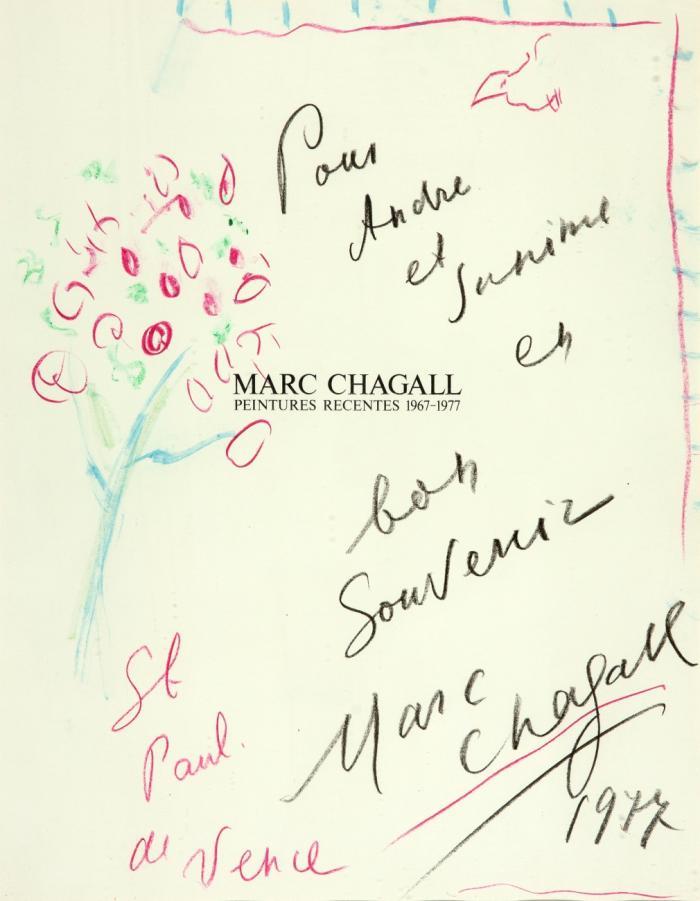 Pour
Andre
et
en
MARC CHAGALL
PEINTURES RECENTES 1967-1977
bon
Souvenir
Marc
Chagall
1977
St
Paul.
de Vence